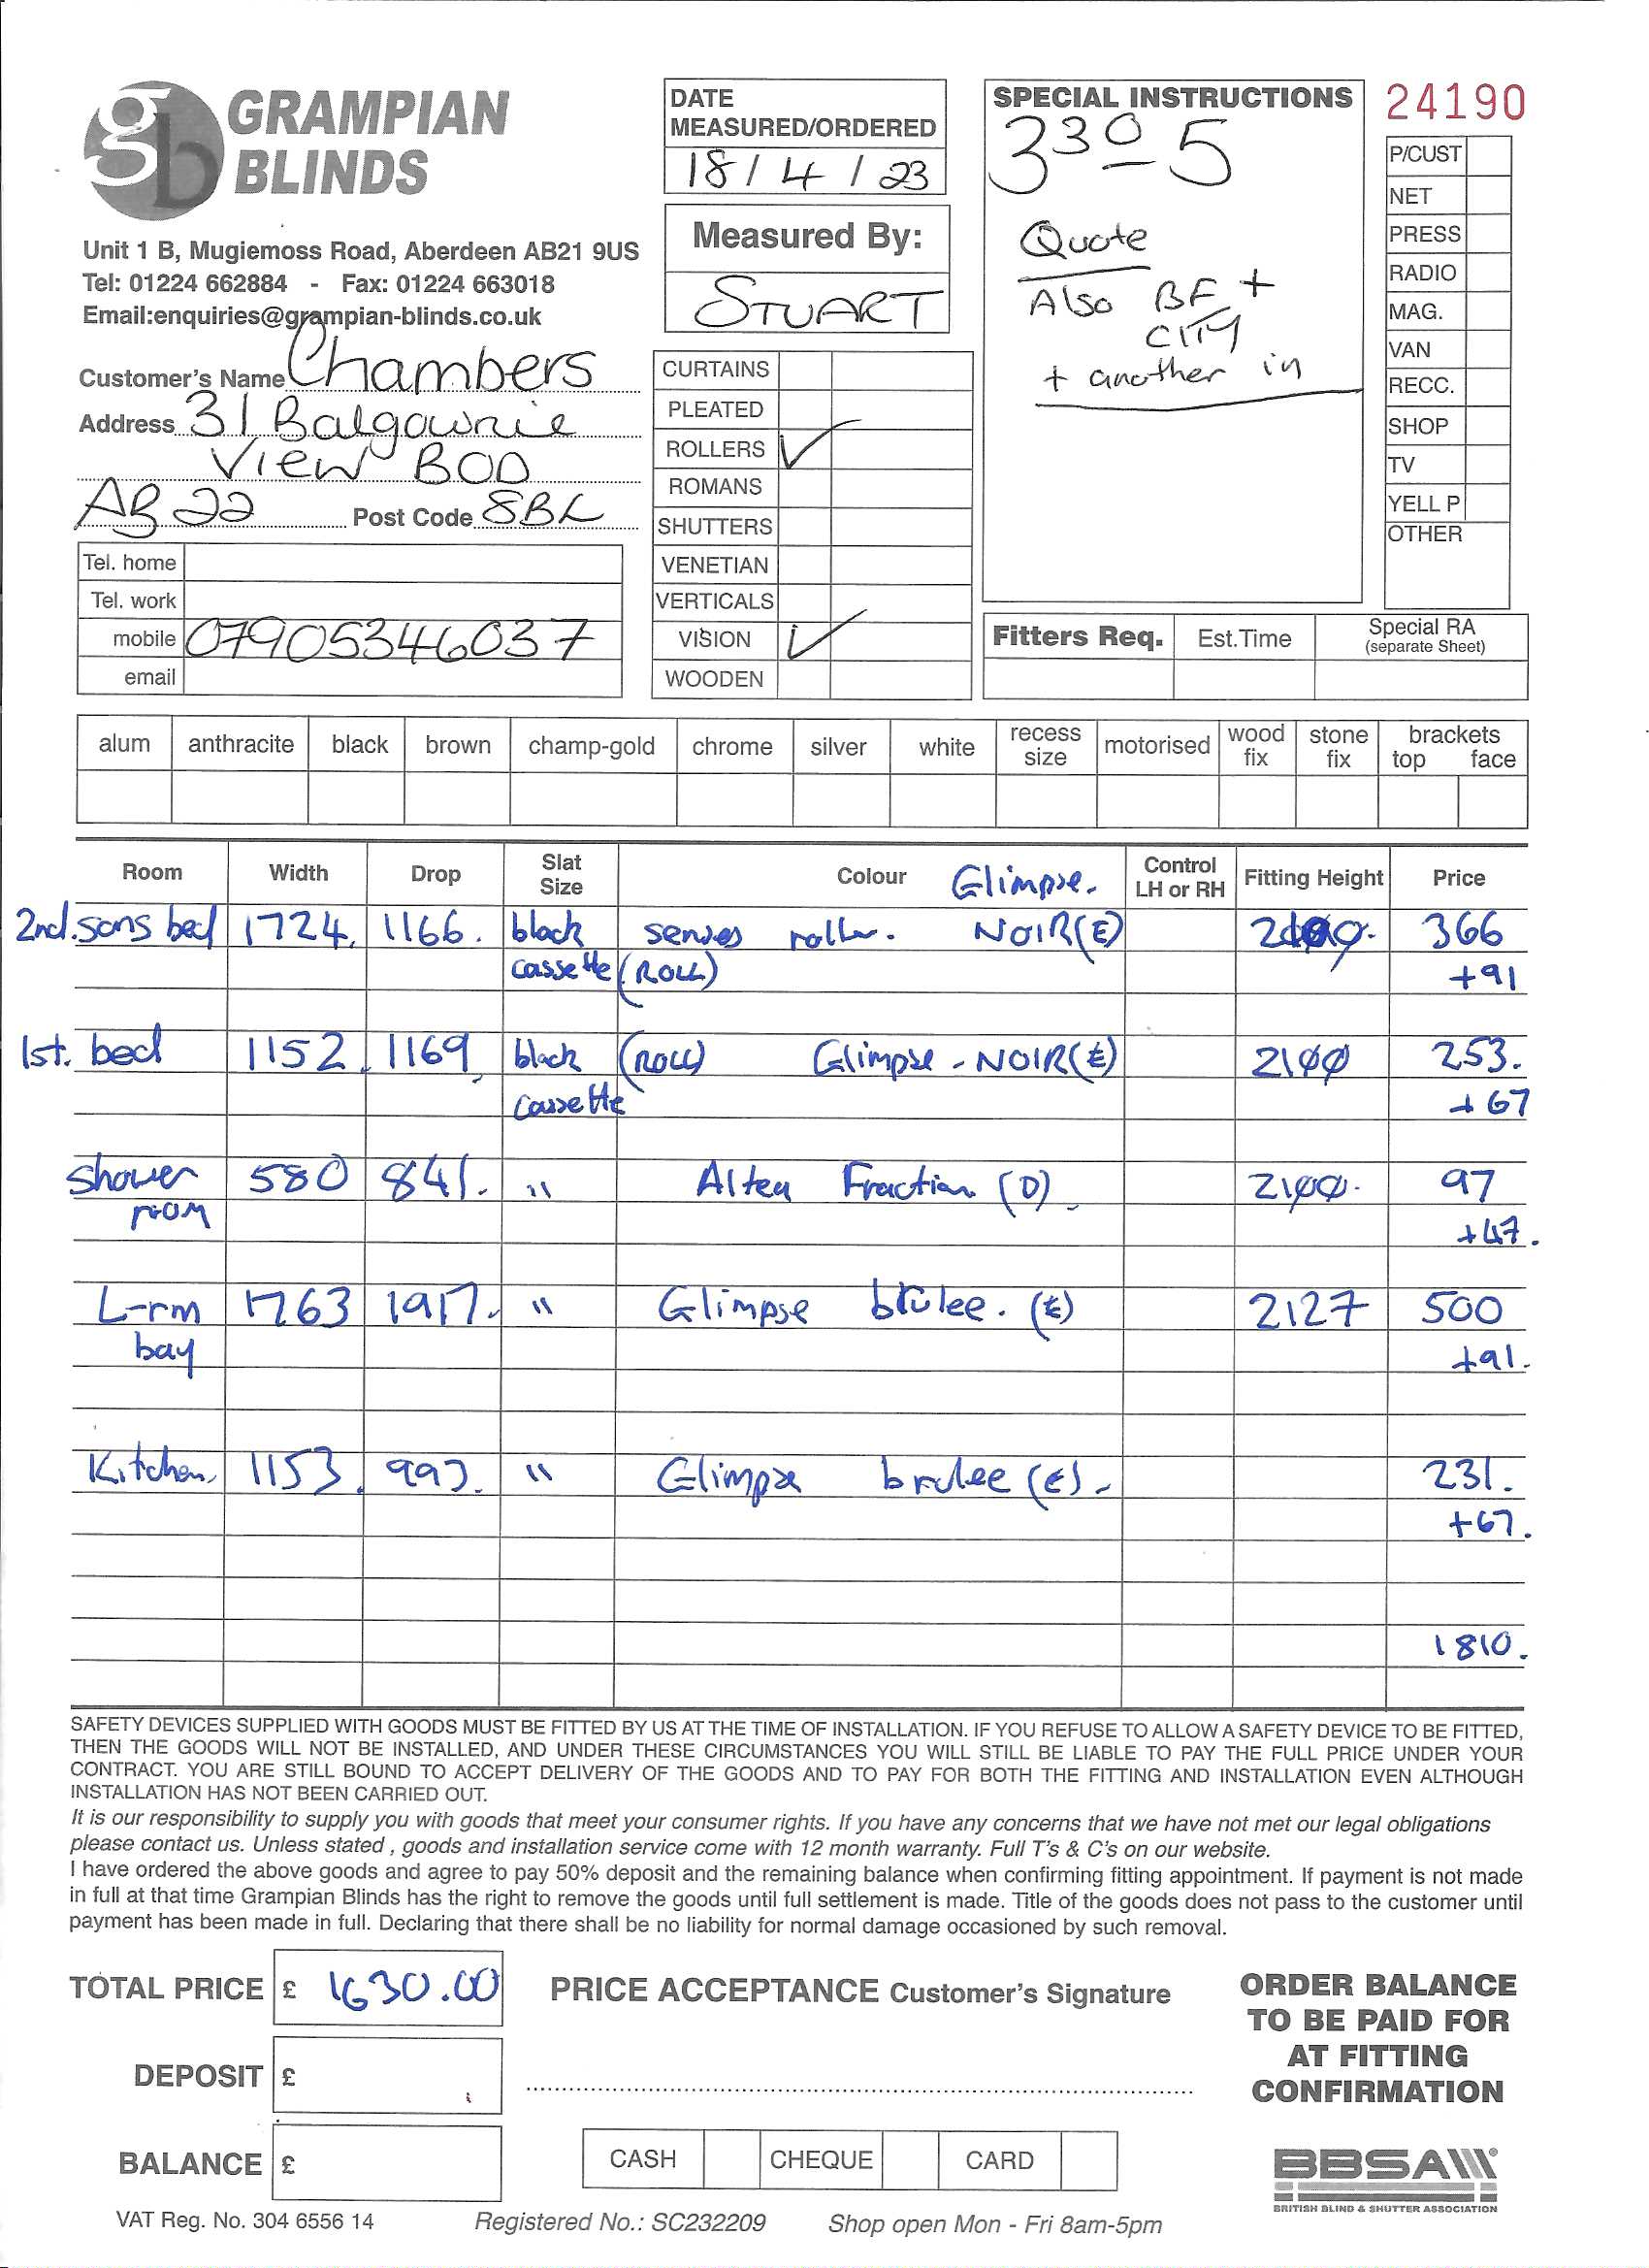 GRAMPIAN
BLINDS
Unit 1 B, Mugiemoss Road, Aberdeen AB21 9US
Tel: 01224 662884 - Fax: 01224 663018
Email:enquiries@grampian-blinds.co.uk
Customer's Name Chambers
Address 31 Balgownie
View BOD
AB22 Post Code 8BL
Tel. home
Tel. work
mobile 07905346037
email
DATE
MEASURED/ORDERED
18 / 4 / 23
Measured By:
STUART
CURTAINS
PLEATED
ROLLERS ✓
ROMANS
SHUTTERS
VENETIAN
VERTICALS
VISION ✓
WOODEN
SPECIAL INSTRUCTIONS
3 30 - 5
Quote
Also BF +
CITY
+ another in
24190
P/CUST
NET
PRESS
RADIO
MAG.
VAN
RECC.
SHOP
TV
YELL P
OTHER
Fitters Req. Est.Time Special RA
(separate Sheet)
alum anthracite black brown champ-gold chrome silver white recess size motorised wood fix stone fix brackets top face
Room Width Drop Slat Size Colour Glimpse. Control LH or RH Fitting Height Price
2nd. sons bed 1724. 1166. black senses roller. NOIR(E) 366
cassette (ROLL) +91
1st. bed 1152. 1169 black (ROLL) Glimpse - NOIR(E) 2100 253.
cassette +67
Shower 580 841. " Altea Fraction (D). 2100. 97
room +47.
L-rm 1763 1917. " Glimpse brulee. (E) 2127 500
bay +91.
Kitchen. 1153. 993. " Glimpse brulee (E). 231.
+67.
1810.
SAFETY DEVICES SUPPLIED WITH GOODS MUST BE FITTED BY US AT THE TIME OF INSTALLATION. IF YOU REFUSE TO ALLOW A SAFETY DEVICE TO BE FITTED,
THEN THE GOODS WILL NOT BE INSTALLED, AND UNDER THESE CIRCUMSTANCES YOU WILL STILL BE LIABLE TO PAY THE FULL PRICE UNDER YOUR
CONTRACT. YOU ARE STILL BOUND TO ACCEPT DELIVERY OF THE GOODS AND TO PAY FOR BOTH THE FITTING AND INSTALLATION EVEN ALTHOUGH
INSTALLATION HAS NOT BEEN CARRIED OUT.
It is our responsibility to supply you with goods that meet your consumer rights. If you have any concerns that we have not met our legal obligations
please contact us. Unless stated , goods and installation service come with 12 month warranty. Full T's & C's on our website.
I have ordered the above goods and agree to pay 50% deposit and the remaining balance when confirming fitting appointment. If payment is not made
in full at that time Grampian Blinds has the right to remove the goods until full settlement is made. Title of the goods does not pass to the customer until
payment has been made in full. Declaring that there shall be no liability for normal damage occasioned by such removal.
TOTAL PRICE £ 1630.00
DEPOSIT £
BALANCE £
PRICE ACCEPTANCE Customer's Signature
CASH CHEQUE CARD
ORDER BALANCE
TO BE PAID FOR
AT FITTING
CONFIRMATION
BBSA
BRITISH BLIND & SHUTTER ASSOCIATION
VAT Reg. No. 304 6556 14 Registered No.: SC232209 Shop open Mon - Fri 8am-5pm